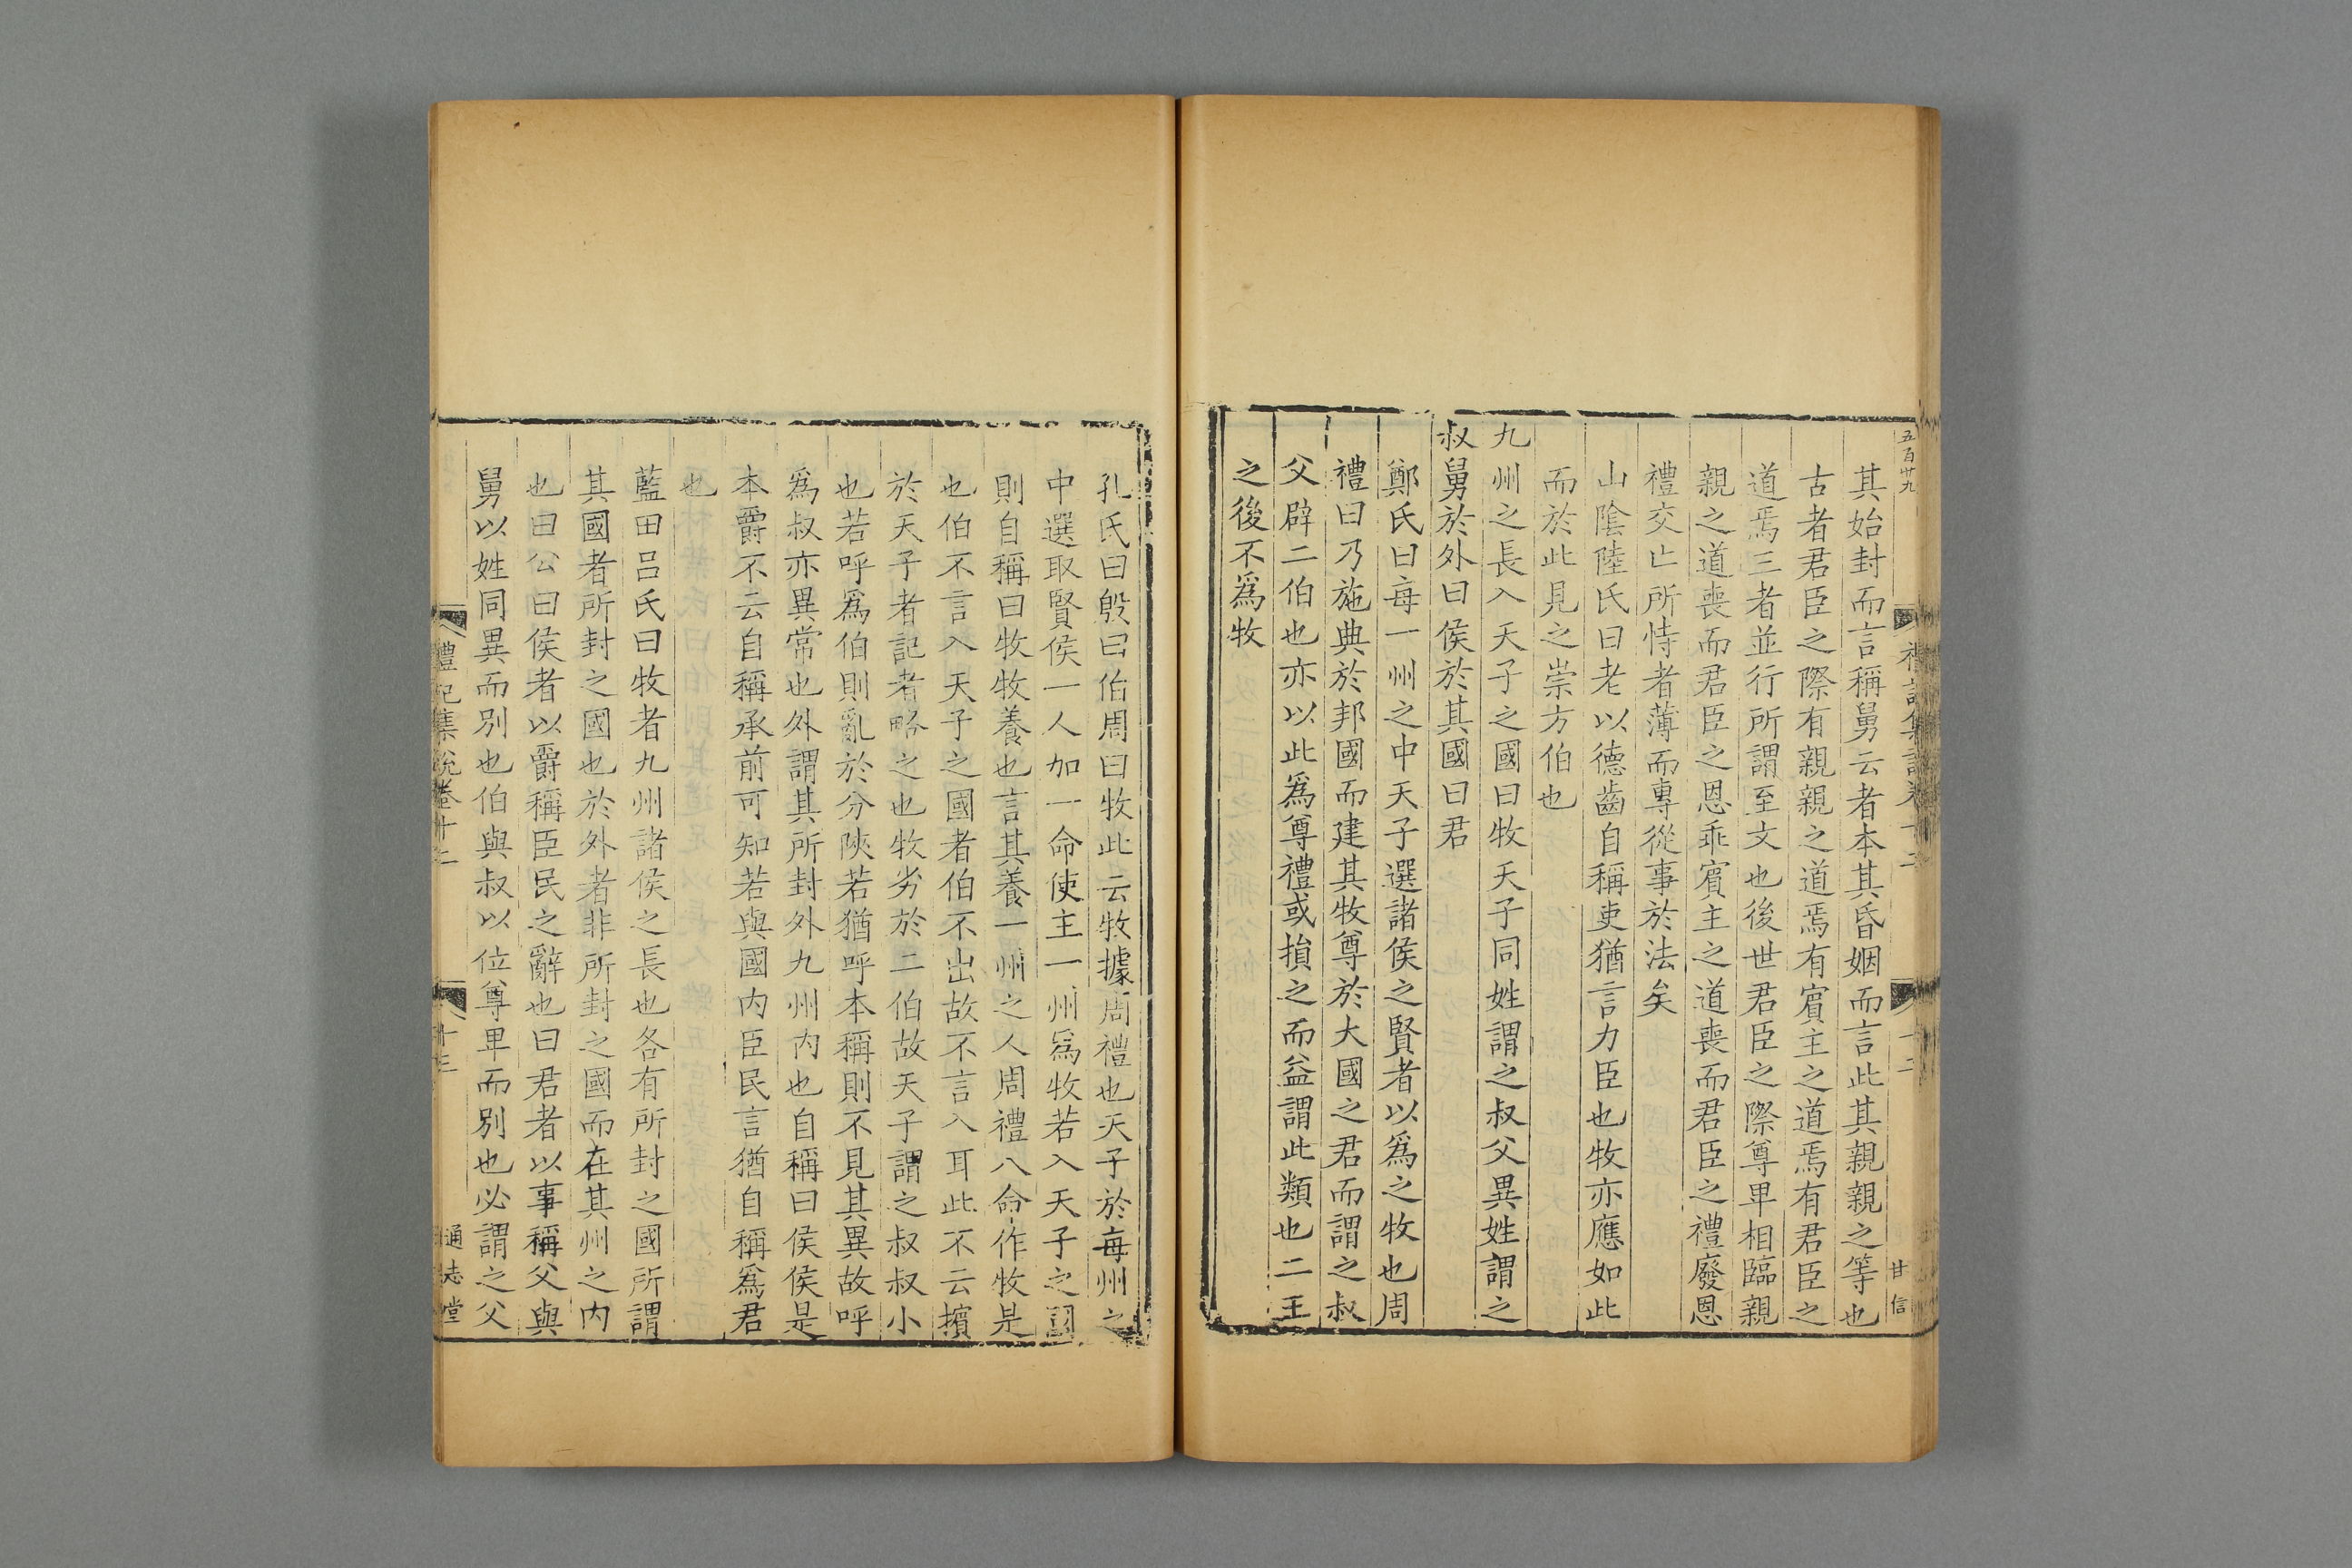 五百廿九
禮記集說卷十二
十二
甘信
其始封而言稱舅云者本其昏姻而言此其親親之等也
古者君臣之際有親親之道焉有賓主之道焉有君臣之
道焉三者並行所謂至文也後世君臣之際尊卑相臨親
親之道喪而君臣之恩乖賓主之道喪而君臣之禮廢恩
禮交亡所恃者薄而專從事於法矣
山陰陸氏曰老以德齒自稱吏猶言力臣也牧亦應如此
而於此見之崇方伯也
九州之長入天子之國曰牧天子同姓謂之叔父異姓謂之
叔舅於外曰侯於其國曰君
鄭氏曰每一州之中天子選諸侯之賢者以爲之牧也周
禮曰乃施典於邦國而建其牧尊於大國之君而謂之叔
父辟二伯也亦以此爲尊禮或損之而益謂此類也二王
之後不爲牧
孔氏曰殷曰伯周曰牧此云牧據周禮也天子於每州之
中選取賢侯一人加一命使主一州爲牧若入天子之國
則自稱曰牧牧養也言其養一州之人周禮八命作牧是
也伯不言入天子之國者伯不出故不言入耳此不云擯
於天子者記者略之也牧劣於二伯故天子謂之叔叔小
也若呼爲伯則亂於分陝若猶呼本稱則不見其異故呼
爲叔亦異常也外謂其所封外九州內也自稱曰侯侯是
本爵不云自稱承前可知若與國內臣民言猶自稱爲君
也
藍田呂氏曰牧者九州諸侯之長也各有所封之國所謂
其國者所封之國也於外者非所封之國而在其州之內
也曰公曰侯者以爵稱臣民之辭也曰君者以事稱父與
舅以姓同異而別也伯與叔以位尊卑而別也必謂之父
禮記集說卷十二
十三
通志堂